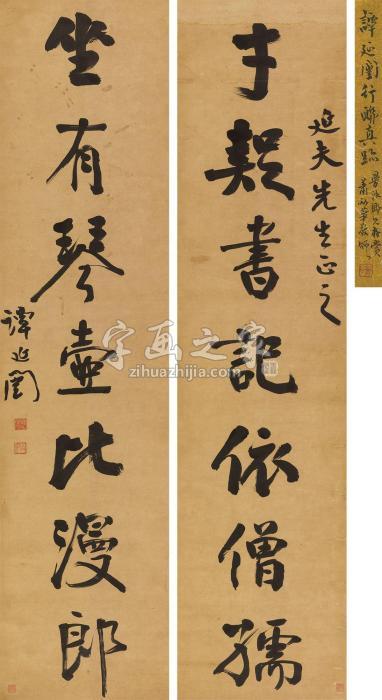 延夫先生正之
才疑書記依僧孺
坐有琴壺比漫郎
譚延闓
譚延闓行聯真跡
字画之家
zihuazhijia.com